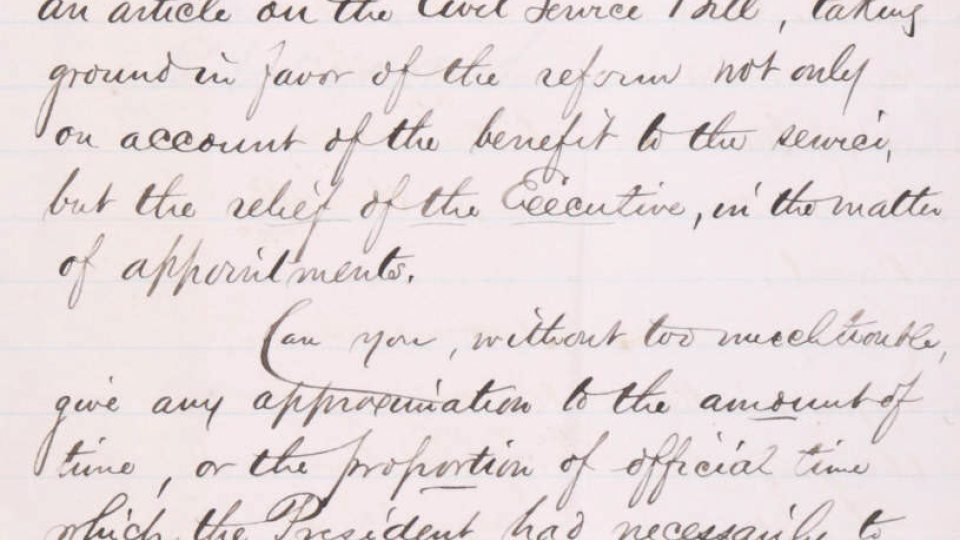 an article on the Civil Service Bill, taking
ground in favor of the reform not only
on account of the benefit to the service,
but the relief of the Executive, in the matter
of appointments.
Can you, without too much trouble,
give any approximation to the amount of
time, or the proportion of official time
which the President had necessarily to